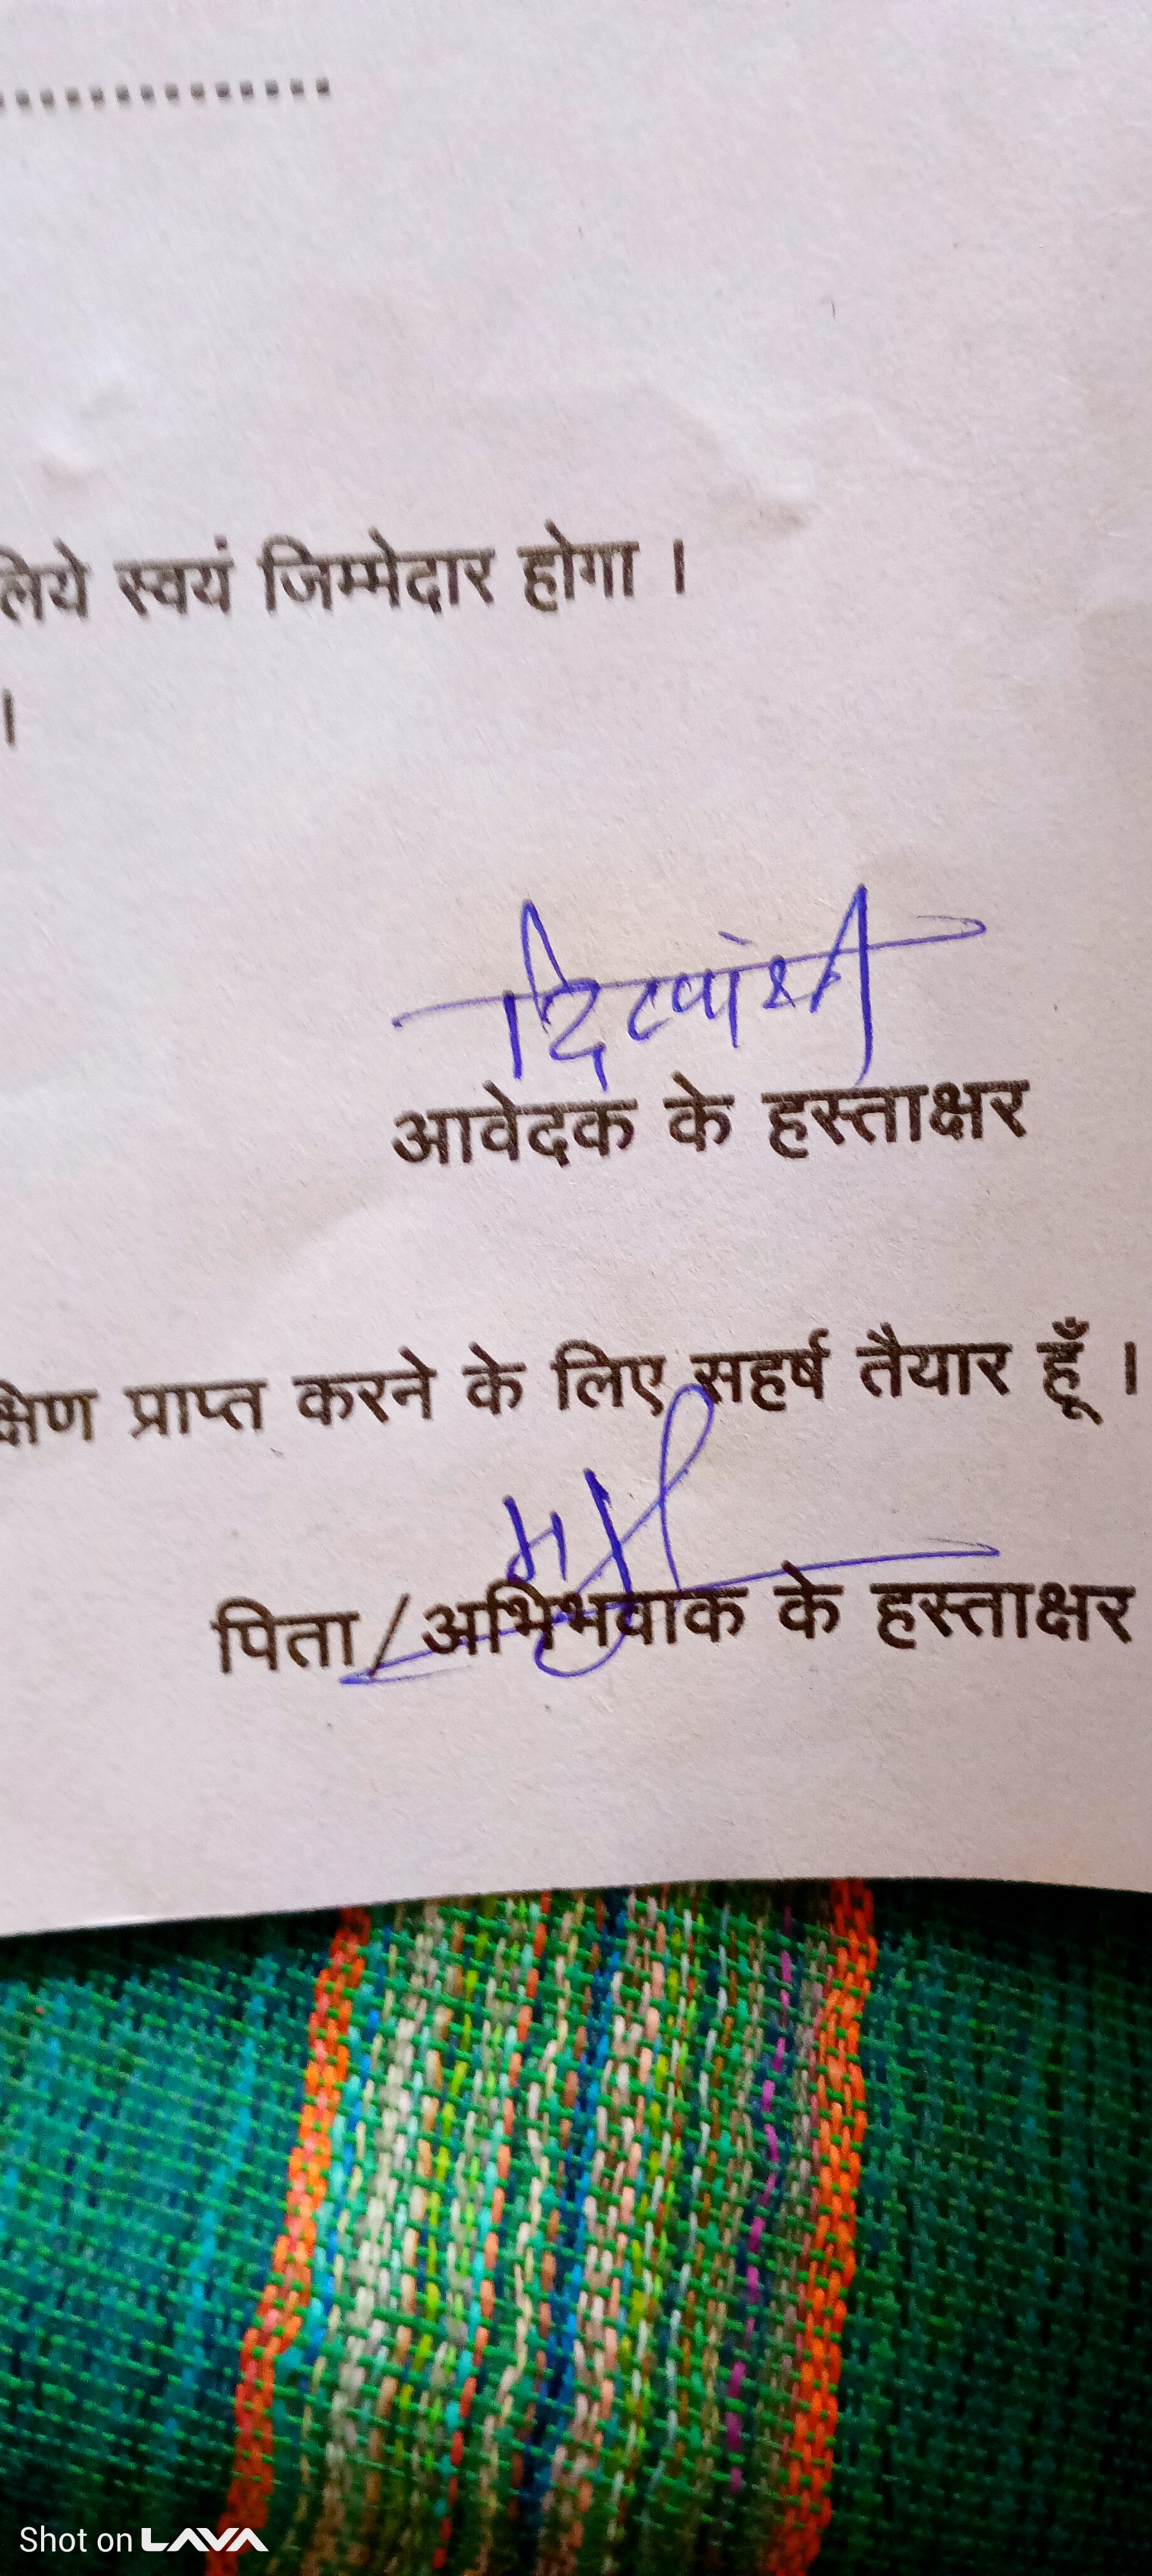 ..............
लिये स्वयं जिम्मेदार होगा ।
।
दिव्यांशी
आवेदक के हस्ताक्षर
क्षिण प्राप्त करने के लिए सहर्ष तैयार हूँ ।
पिता/अभिभवाक के हस्ताक्षर
Shot on LAVA